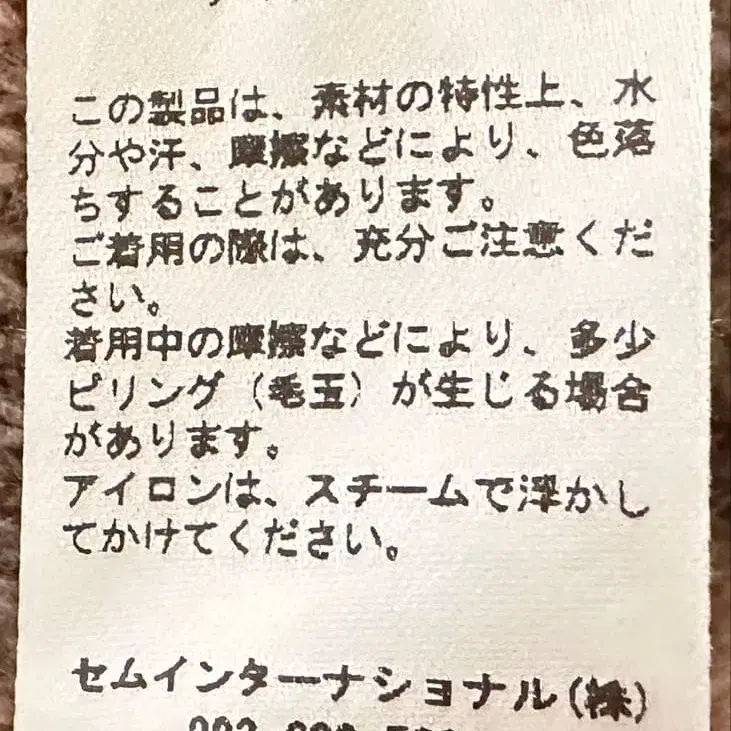 この製品は、素材の特性上、水
分や汗、摩擦などにより、色落
ちすることがあります。
ご着用の際は、充分ご注意くだ
さい。
着用中の摩擦などにより、多少
ピリング（毛玉）が生じる場合
があります。
アイロンは、スチームで浮かし
てかけてください。
セムインターナショナル(株)